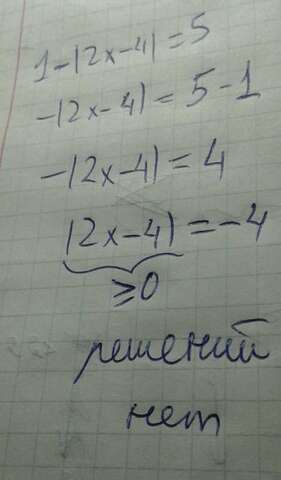 1-|2x-4|=5
-|2x-4|=5-1
-|2x-4|=4
|2x-4|=-4
≥0
решений
нет